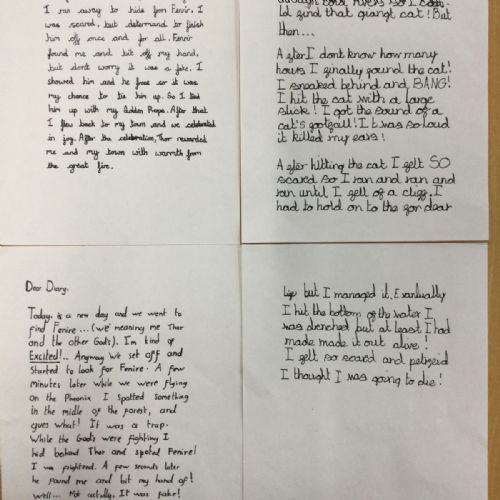 I ran away to hide from Fenrir. I
was scared, but determand to finish
him off once and for all. Fenrir
found me and bit off my hand,
but dont worry it was a fake. I
showed him and he froze so it was
my chance to tie him up. So I tied
him up with my Golden Rope. After that
I flew back to my town and we celebrated
in joy. After the celebration, Thor rewarded
me and my town with warmth from
the great fire.
through cold rivers so I can
find that giangt cat! But
then...
After I dont know how many
hours I finally found the cat!
I sneaked behind and BANG!
I hit the cat with a large
stick! I got the sound of a
cat's footfall! It was so loud
it killed my ears!
After hitting the cat I felt SO
scared so I ran and ran and
ran until I fell of a cliff. I
had to hold on to the for dear
Dear Diary,
Today, is a new day and we went to
find Fenire...(we meaning me Thor
and the other God's). I'm kind of
Excited!.. Anyway we set off and
started to look for Fenire. A few
minutes later while we were flying
on the Phoenix I spotted something
in the middle of the forest, and
gues what! It was a trap.
While the God's were fighting I
hid behind Thor and spoted Fenire!
I was frightend. A few seconds later
he found me and bit my hand of!
Well... Not actully. It was fake!
life but I managed it. Evantually
I hit the bottom of the water I
was drenched but at least I had
made made it out alive!
I felt so scared and petified
I thought I was going to die!